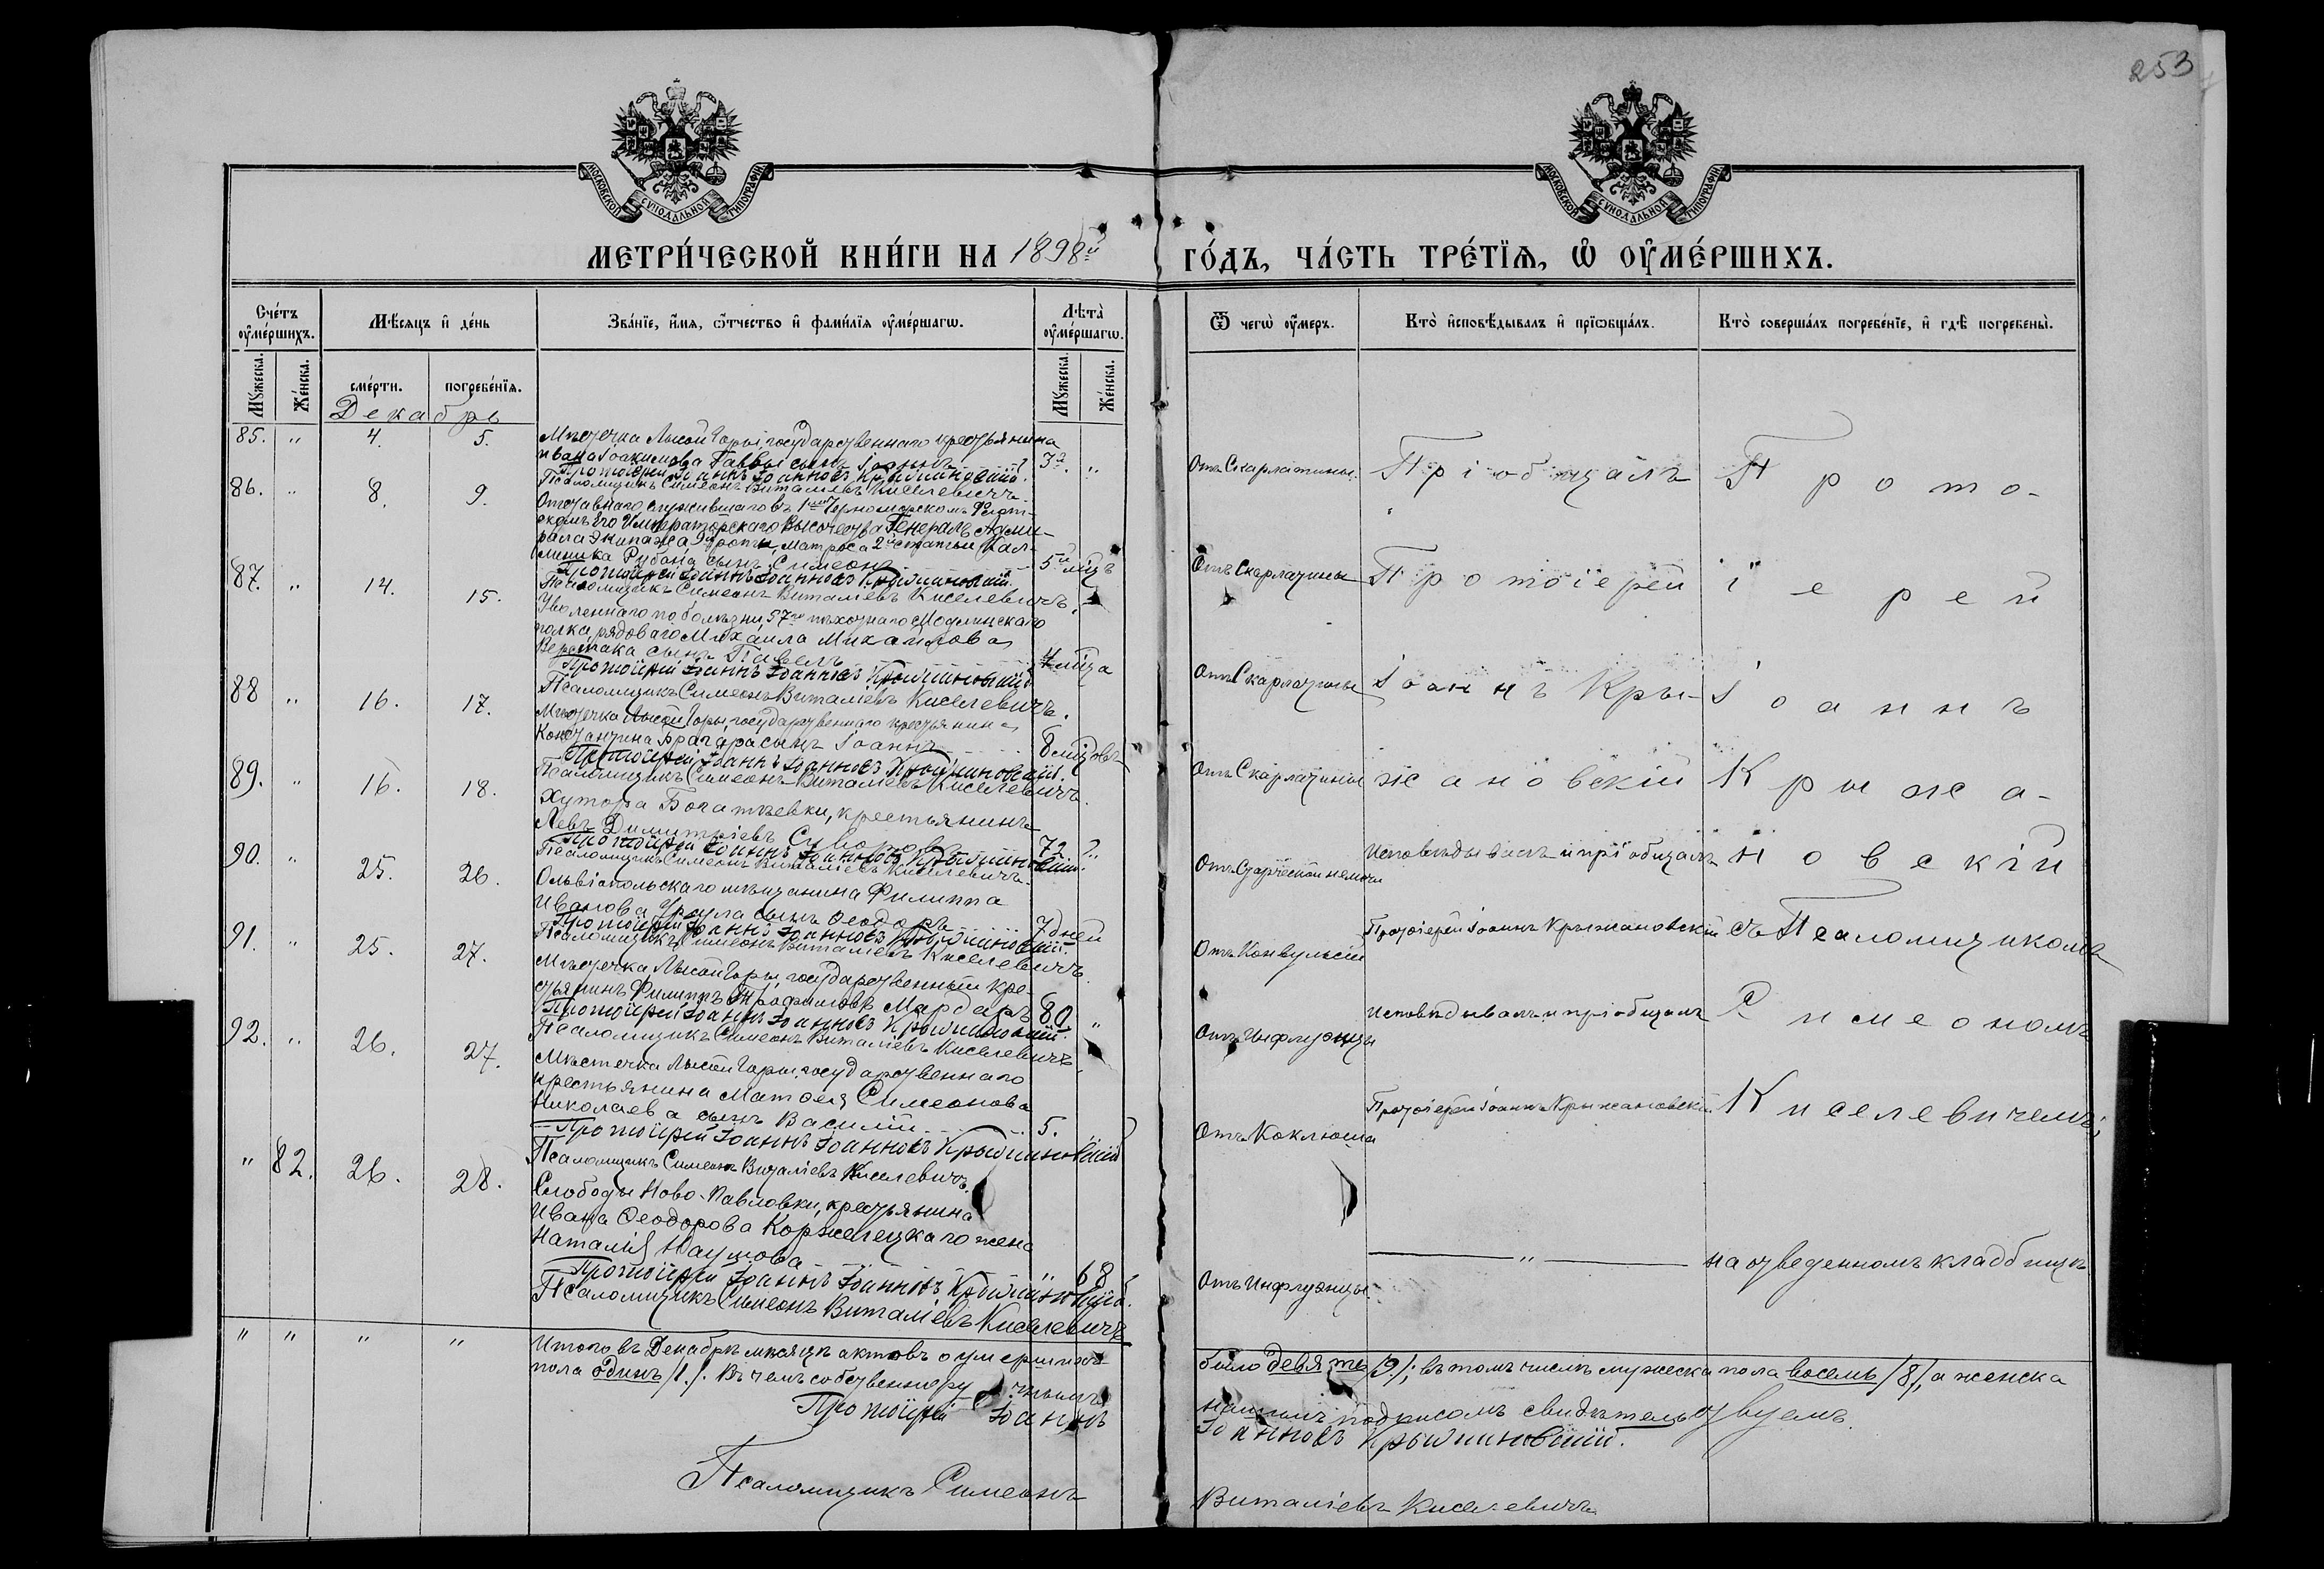 253
МОСКОВСКОЙ СѴНОДАЛЬНОЙ ТИПОГРАФІИ
МОСКОВСКОЙ СѴНОДАЛЬНОЙ ТИПОГРАФІИ
МЕТРИ́ЧЕСКОЙ КНИ́ГИ НА 1898й
ГО́ДЪ, ЧА́СТЬ ТРЕ́ТЇѦ, Ѡ ОУ҆МЕ́РШИХЪ.
Сче́тъ оу҆ме́ршихъ.
Мѣ́сяцъ и҆ де́нь
Зва́нїе, и҆́мѧ, ѻ҆́тчество и҆ фами́лїѧ оу҆ме́ршагѡ.
Лѣта̀ оу҆ме́ршагѡ.
Ѿ чегѡ̀ оу҆́меръ.
Кто̀ и҆сповѣ́дывалъ и҆ прїѡбща́лъ.
Кто̀ соверша́лъ погребе́нїе, и҆ гдѣ̀ погребены̀.
Мꙋ́жеска.
Же́нска.
сме́рти.
погребе́нїѧ.
Мꙋ́жеска.
Же́нска.
Декабрь
85. " 4. 5. Мѣстечка Лысой Горы, государственнаго крестьянина
Ивана Іоакимова Паввы сынъ Іоаннъ
Протоіерей Іоаннъ Іоанновъ Крыжановскій.
Псаломщикъ Симеонъ Виталіевъ Киселевичъ.
Отъ Скарлатины
Пріобщалъ
Прото-
86. " 8. 9. Отставнаго служившаго въ 1мъ Черноморскомъ Флот-
скомъ Его Императорскаго Высочества Генералъ Адми-
рала Экипажа 9й роты, матроса 2й статьи Кал-
линика Рубана сынъ Симеонъ 5ти мѣц
Протоіерей Іоаннъ Іоанновъ Крыжановскій.
Псаломщикъ Симеонъ Виталіевъ Киселевичъ.
Отъ Скарлатины
Протоіерей
іерей
87. " 14. 15. Уволеннаго по болѣзни, 57го пѣхотнаго Модлинскаго
полка, рядоваго Михаила Михайлова
сынъ Павелъ 4 мѣца
Протоіерей Іоаннъ Іоанновъ Крыжановскій.
Псаломщикъ Симеонъ Виталіевъ Киселевичъ.
Отъ Скарлатины
Іоаннъ Кры-
Іоаннъ
88 " 16. 17. Мѣстечка Лысой Горы, государственнаго крестьянина
Константина сынъ Іоаннъ 8 мѣцовъ
Протоіерей Іоаннъ Іоанновъ Крыжановскій.
Псаломщикъ Симеонъ Виталіевъ Киселевичъ.
Отъ Скарлатины
жановскій
Крыжа-
89. " 16. 18. Хутора Богатьевки, крестьянинъ
Левъ Димитріевъ Суворовъ 72 "
Протоіерей Іоаннъ Іоанновъ Крыжановскій.
Псаломщикъ Симеонъ Виталіевъ Киселевичъ.
Отъ Старческой немочи
Исповѣдывалъ и пріобщалъ
новскій
90. " 25. 26. Ольвіопольскаго мѣщанина Филиппа
Иванова сынъ Ѳеодоръ 7 дней
Протоіерей Іоаннъ Іоанновъ Крыжановскій.
Псаломщикъ Симеонъ Виталіевъ Киселевичъ.
Отъ Конвульсіи
Протоіерей Іоаннъ Крыжановскій
съ Псаломщикомъ
91. " 25. 27. Мѣстечка Лысой Горы, государственный кре-
стьянинъ Филиппъ Трофимовъ Мардаръ 80 "
Протоіерей Іоаннъ Іоанновъ Крыжановскій.
Псаломщикъ Симеонъ Виталіевъ Киселевичъ.
Отъ Инфлуэнцы
Исповѣдывалъ и пріобщалъ
Симеономъ
92. " 26. 27. Мѣстечка Лысой Горы, государственнаго
крестьянина Матѳея Симеонова
Николаева сынъ Василій 5.
Протоіерей Іоаннъ Іоанновъ Крыжановскій
Псаломщикъ Симеонъ Виталіевъ Киселевичъ.
Отъ Коклюша
Протоіерей Іоаннъ Крыжановскій
Киселевичемъ;
" 82. 26. 28. Слободы Ново-Павловки, крестьянина
Ивана Ѳеодорова Коржелецкаго жена
Наталія Наумова " 68
Протоіерей Іоаннъ Іоанновъ Крыжановскій.
Псаломщикъ Симеонъ Виталіевъ Киселевичъ
Отъ Инфлуэнцы.
"
на отведенномъ кладбищѣ
" " " " Итого въ Декабрѣ мѣсяцѣ актовъ о умершихъ было девять /9/; въ томъ числѣ мужеска пола восемь /8/, а женска
пола одинъ /1./. Въ чемъ собственноручнымъ
нашимъ подписомъ свидѣтельствуемъ.
Протоіерей Іоаннъ Іоанновъ Крыжановскій.
Псаломщикъ Симеонъ Виталіевъ Киселевичъ